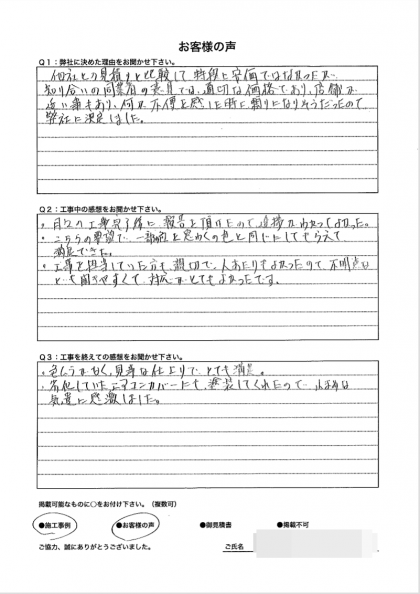 お客様の声
Q1：弊社に決めた理由をお聞かせ下さい。
他社との見積りと比較して 特段に安価ではなかったが、
知り合いの同業者の意見では、適切な価格であり、店舗が
近い事もあり、何か不便を感じた時に頼りになりそうだったので
弊社に決定しました。
Q2：工事中の感想をお聞かせ下さい。
・日々の工事完了後に報告を頂けたので、進捗がわかってよかった。
・こちらの要望で、一部 と思わくの色と同じにしてもらえて
満足できた。
・工事を担当していた方も親切で、人あたりもよかったので、不明点など
とても聞きやすくて、対応がとてもよかったです。
Q3：工事を終えての感想をお聞かせ下さい。
・色ムラがなく、見事な仕上りで、とても満足。
・劣化していたエアコンカバーにも、塗装してくれたので、
気遣に感激しました。
掲載可能なものに○をお付け下さい。（複数可）
●施工事例 ●お客様の声 ●御見積書 ●掲載不可
ご協力、誠にありがとうございました。 ご氏名